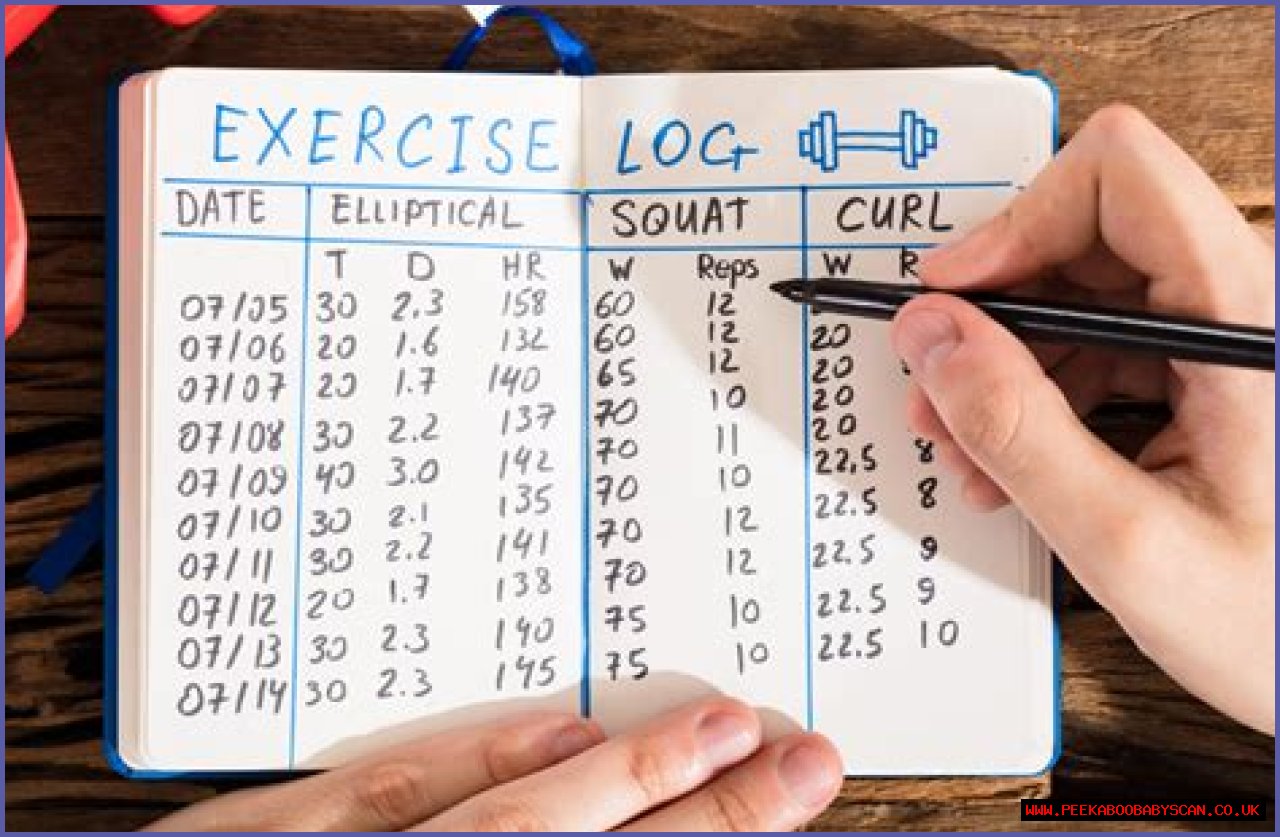 EXERCISE LOG
DATE ELLIPTICAL SQUAT CURL
T D HR W Reps W R
07/05 30 2.3 158 60 12
07/06 20 1.6 132 60 12 20
07/07 20 1.7 140 65 12 20
07/08 30 2.2 137 70 10 20
07/09 40 3.0 142 70 11 20
07/10 30 2.1 135 70 10 22,5 8
07/11 30 2.2 141 70 12 22.5 8
07/12 20 1.7 138 70 12 22.5 9
07/13 30 2.3 140 75 10 22.5 9
07/14 30 2.3 145 75 10 22.5 10
WWW.PEEKABOOBABYSCAN.CO.UK